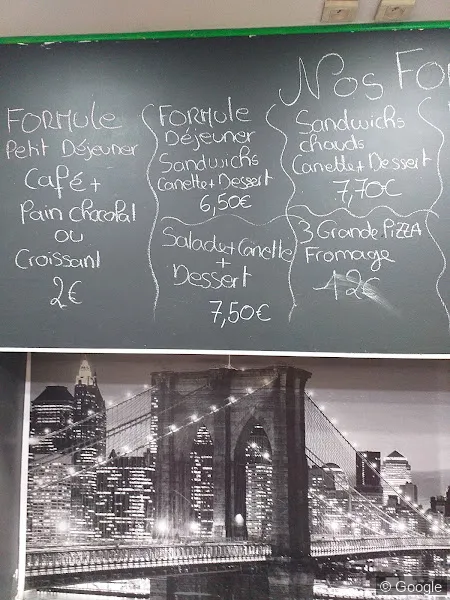 Nos Fo
FORMULE
Petit Déjeuner
Café +
Pain chocolat
ou
Croissant
2€
FORMULE
Déjeuner
Sandwichs
Canette + Dessert
6,50€
Salade + Canette
+
Dessert
7,50€
Sandwichs
chauds
Canette + Dessert
7,70€
3 Grande PIZZA
Fromage
12€
© Google